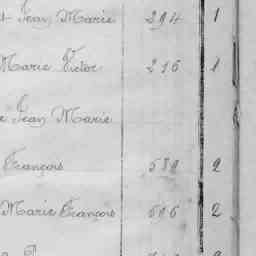 Jean Marie 294 1
Marie Victor 216 1
Jean Marie
François 589 2
Marie François 696 2